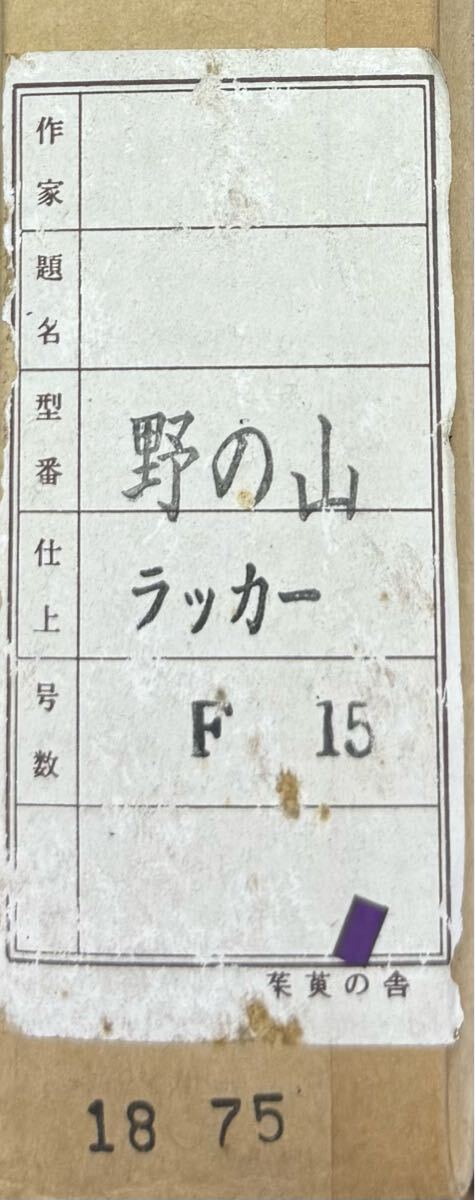 作家
題名
型番 野の山
仕上 ラッカー
号数 F 15
茱萸の舎
18 75